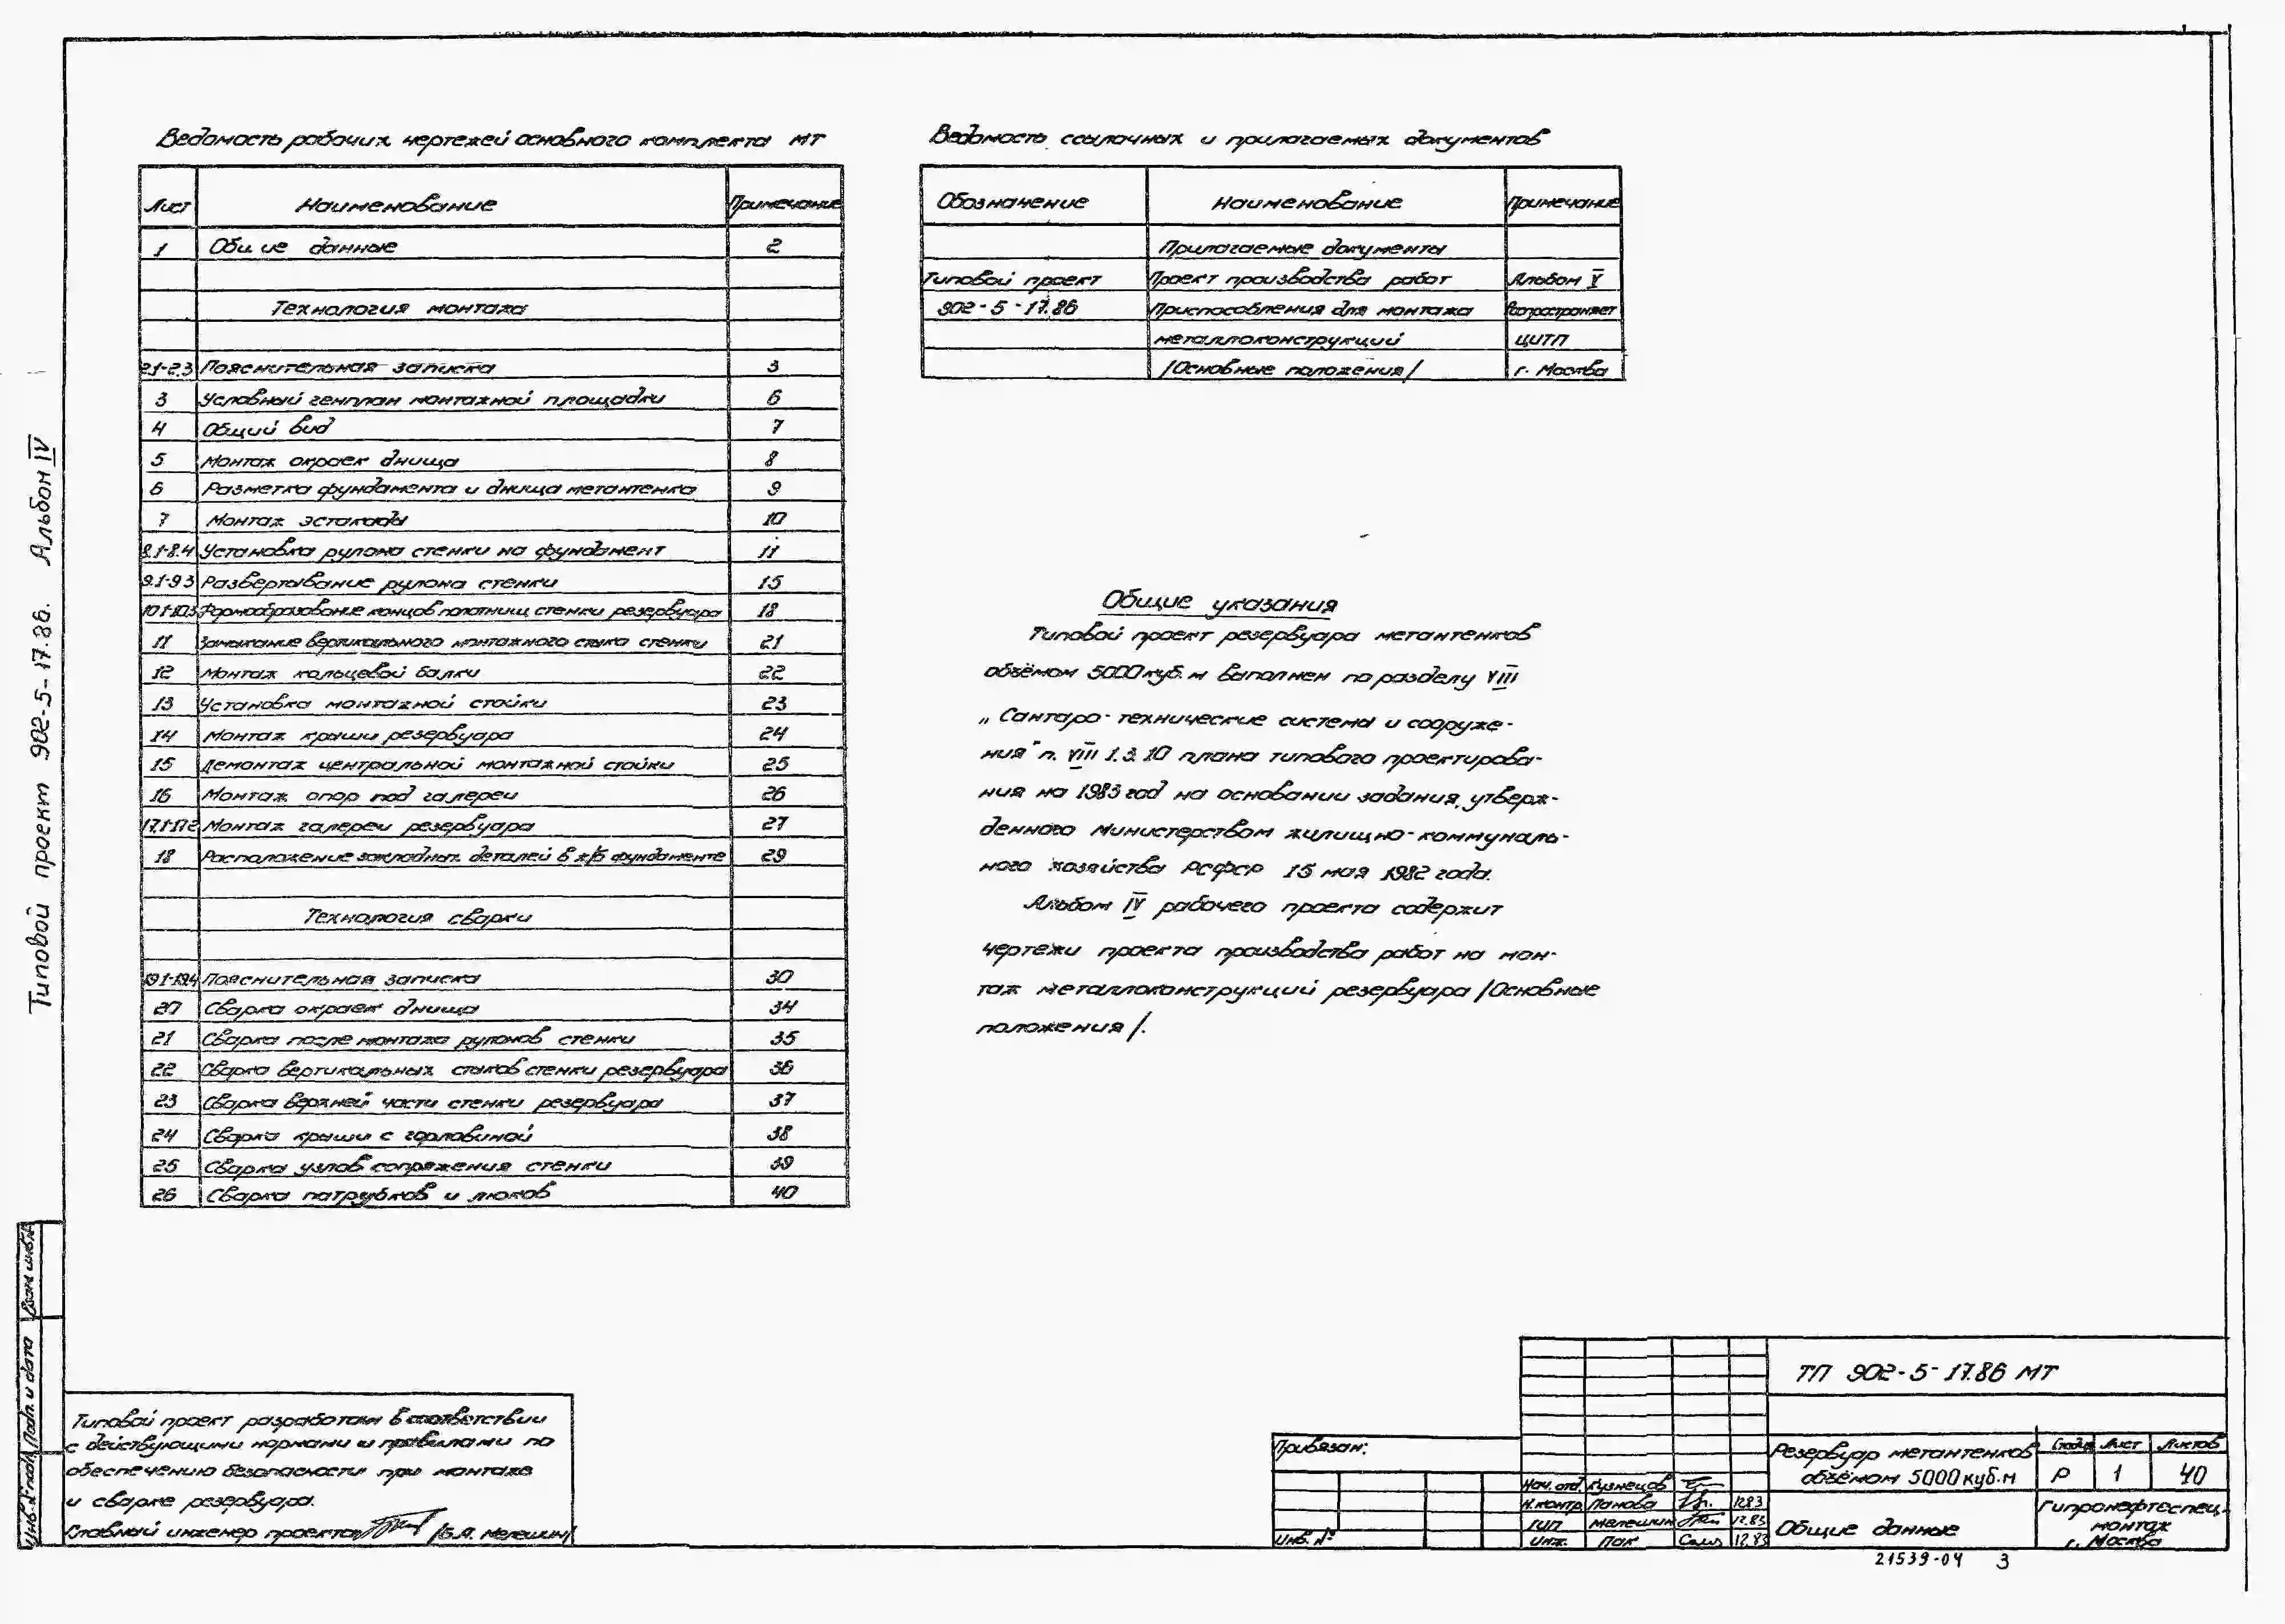 Ведомость рабочих чертежей основного комплекта МТ
Лист Наименование Примечание
1 Общие данные 2
Технология монтажа
2.1-2.3 Пояснительная записка 3
3 Условный генплан монтажной площадки 6
4 Общий вид 7
5 Монтаж окраек днища 8
6 Разметка фундамента и днища метантенка 9
7 Монтаж эстакады 10
8.1-8.4 Установка рулона стенки на фундамент 11
9.1-9.3 Развертывание рулона стенки 15
10.1-10.3 Формообразование концов полотнищ стенки резервуара 18
11 Замыкание вертикального монтажного стыка стенки 21
12 Монтаж кольцевой балки 22
13 Установка монтажной стойки 23
14 Монтаж крыши резервуара 24
15 Демонтаж центральной монтажной стойки 25
16 Монтаж опор под галереи 26
17.1-17.2 Монтаж галереи резервуара 27
18 Расположение закладных деталей в ж/б фундаменте 29
Технология сварки
19.1-19.4 Пояснительная записка 30
20 Сварка окраек днища 34
21 Сварка после монтажа рулонов стенки 35
22 Сварка вертикальных стыков стенки резервуара 36
23 Сварка верхней части стенки резервуара 37
24 Сварка крыши с горловиной 38
25 Сварка узлов сопряжения стенки 39
26 Сварка патрубков и люков 40
Ведомость ссылочных и прилагаемых документов
Обозначение Наименование Примечание
Прилагаемые документы
Типовой проект Проект производства работ Альбом V
902-5-17.86 Приспособления для монтажа Распространяет
металлоконструкций ЦИТП
/Основные положения/ г. Москва
Общие указания
Типовой проект резервуара метантенков
объёмом 5000 куб. м выполнен по разделу VIII
„Сантаро-технические система и сооруже-
ния" п. VIII 1.3.10 плана типового проектирова-
ния на 1983 год на основании задания, утверж-
денного Министерством жилищно-коммуналь-
ного хозяйства РСФСР 15 мая 1982 года.
Альбом IV рабочего проекта содержит
чертежи проекта производства работ на мон-
таж металлоконструкций резервуара /Основные
положения/.
Типовой проект 902-5-17.86. Альбом IV
Взам инв. №
Подп. и дата
Инв. № подл
Типовой проект разработан в соответствии
с действующими нормами и правилами по
обеспечению безопасности при монтаже
и сварке резервуара.
Главный инженер проекта /Б.А. Мелешин/
Привязан:
Инв. №
Нач. отд. Кузнецов
Н.контр. Панова 12.83
ГИП Мелешин 12.83
Инж. Пак 12.83
ТП 902-5-17.86 МТ
Резервуар метантенков
объёмом 5000 куб. м
Стадия Лист Листов
Р 1 40
Общие данные
Гипронефтеспец-
монтаж
г. Москва
21539-04 3